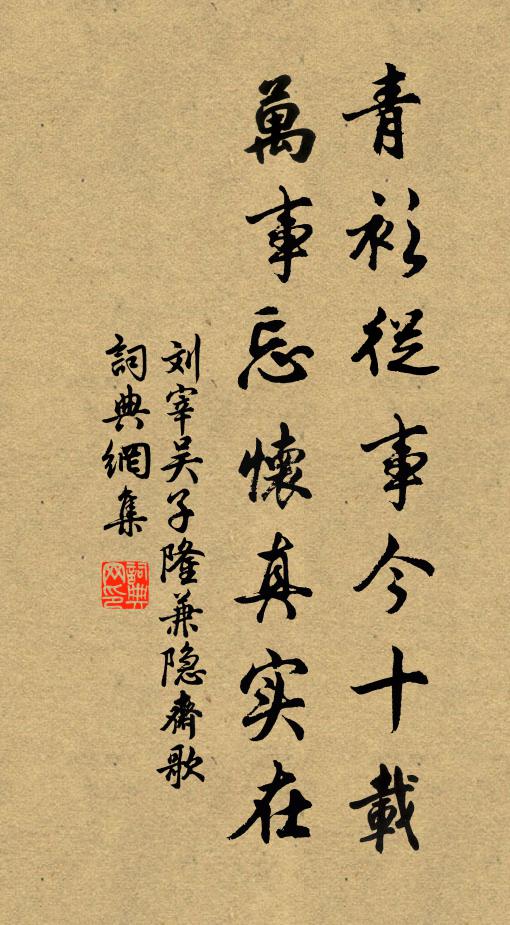 青衫從事今十載
萬事忘懷真实在
刘宰吴子隆兼隐齋歌
詞典網集
詞典網印